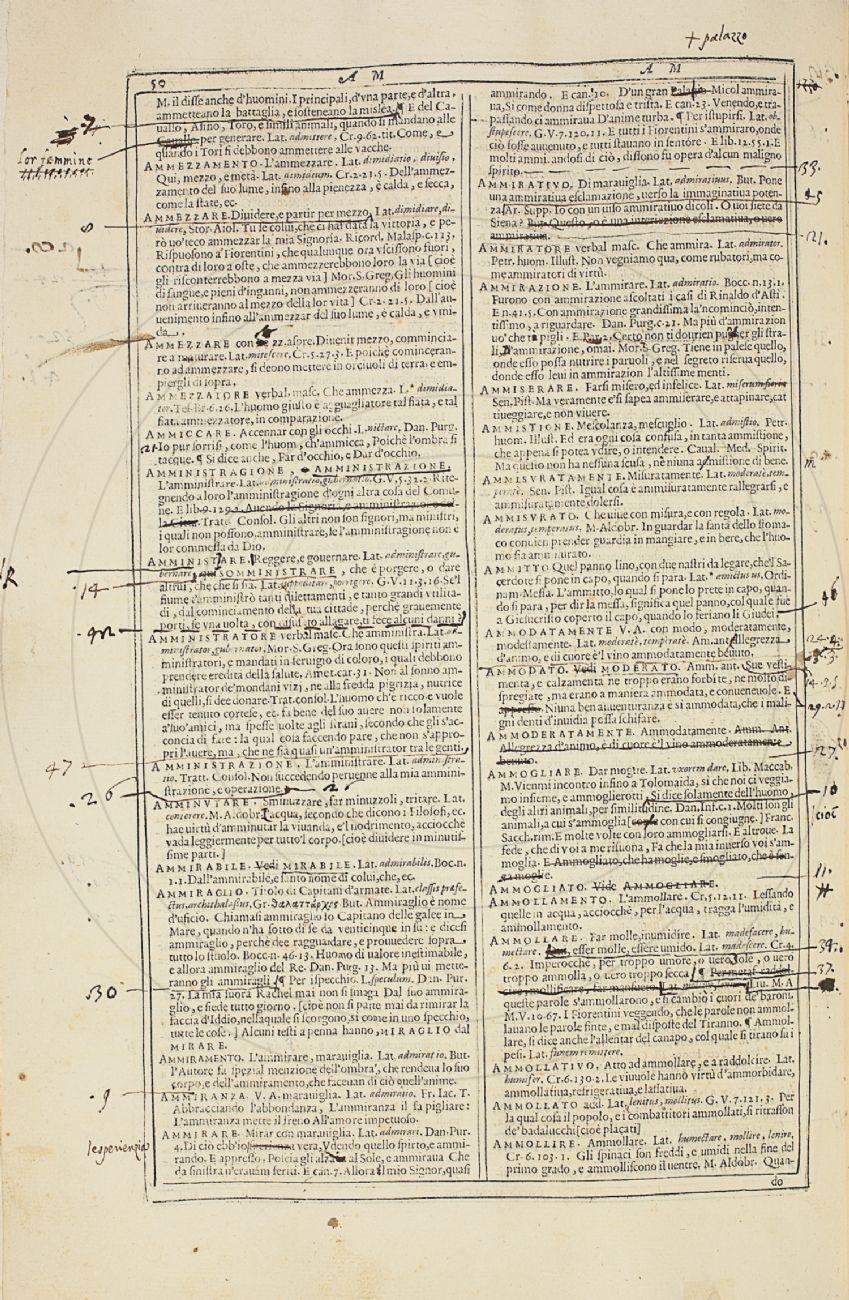 + palazzo
50 A M
A M
M. il disse anche d'huomini. I principali, d'vna parte, e d'altra,
ammetteano la battaglia, e sosteneano la mislea. ¶ E del Ca-
uallo, Asino, Toro, e simili animali, quando si mandano alle
per generare. Lat. admittere. Cr. 9. 62. tit. Come, e
quando i Tori si debbono ammettere alle vacche.
AMMEZZAMENTO. L'ammezzare. Lat. dimidiatio, diuisio,
Qui, mezzo, e metà. Lat. dimidium. Cr. 2. 21. 5. Dell'ammez-
zamento del suo lume, insino alla pienezza, è calda, e secca,
come la state, ec.
AMMEZZARE. Diuidere, e partir per mezzo. Lat. dimidiare, di-
uidere, Stor. Aiol. Tu se colui, che ci hai data la vittoria, e pe-
rò uo'teco ammezzar la mia Signoria. Ricord. Malasp. c. 113.
Rispuosono a'Fiorentini, che qualunque ora vscissono fuori,
contra di loro a oste, che ammezzerebbono loro la via [cioè
gli riscontrerebbono a mezza via] Mor. S. Greg. Gli huomini
di sangue, e pieni d'inganni, non ammezzeranno di loro [cioè
non arriueranno al mezzo della lor vita] Cr. 2. 21. 5. Dall'au-
uenimento infino all'ammezzar del suo lume, è calda, e vmi-
da.
AMMEZZARE con zz. aspre. Diuenir mezzo, comincia-
re a maturare. Lat. mitescere, Cr. 5. 27. 3. E poichè comınceran-
no ad ammezzare, si deono mettere in orciuoli di terra, e em-
piergli di sopra.
AMMEZZATORE verbal. masc. Che ammezza. L. dimidia-
tor. Tes. Br. 6. 26. L'huomo giusto è agguagliatore tal fiata, e tal
fiata ammezzatore, in comparazione.
AMMICCARE. Accennar con gli occhi. L. nictare, Dan. Purg.
21. Io pur sorrisi, come l'huom, ch'ammicca, Poichè l'ombra si
tacque. ¶ Si dice anche, Far d'occhio, e Dar d'occhio.
AMMINISTRAGIONE, e AMMINISTRAZIONE.
L'amministrare. Lat. administratio, gubernatio. G. V. 5. 32. 2. Rite-
gnendo a loro l'amministragione d'ogni altra cosa del Comu-
ne. E lib. 9. 129. 2. Auendo la Signoria, e amministragione
la Città. Tratt. Consol. Gli altri non son signori, ma ministri,
i quali non possono, amministrare, se l'amministragione non è
lor commessa da Dio.
AMMINISTRARE. Reggere, e gouernare. Lat. administrare, gu-
bernare, qui SOMMINISTRARE, che è porgere, o dare
altrui, che che si sia. Lat. suppeditare, porrigere. G. V. 11. 3. 16. Se'l
fiume t'amministrò tanti dilettamenti, e tanto grandi vtilita-
di, dal cominciamento della tua cittade, perchè grauemente
porti, se vna uolta, con aususato allagare, ti fece alcuni danni?
AMMINISTRATORE verbal masc. Che amministra. Lat. ad-
ministrator, gubernator. Mor. S. Greg. Ora sono questi spiriti am-
ministratori, e mandati in seruigio di coloro, i quali debbono
prendere eredita della salute. Amet. car. 31. Non al sonno am-
ministrator de'mondani vizj, ne alla fredda pigrizia, nutrice
di quelli, si dee donare. Trat. consol. L'huomo ch'è ricco e vuole
esser tenuto cortese, ec. fa bene del suo auere non solamente
a'suoi amici, ma spesse uolte agli strani, secondo che gli s'ac-
concia di fare: la qual cosa faccendo pare, che non s'appro-
pri l'auere, ma, che ne sia quasi un'amministrator tra le genti.
AMMINISTRAZIONE. L'amministrare. Lat. administra-
tio. Tratt. Consol. Non succedendo peruenne alla mia ammini-
strazione, e operazione.
AMMINVTARE. Sminuzzare, far minuzzoli, tritare. Lat.
conterere. M. Aldobr. L'acqua, secondo che dicono i Filosofi, ec.
hae uirtù d'amminutar la viuanda, e'l nodrimento, acciocchè
vada leggiermente per tutto'l corpo. [cioè diuidere in minutis-
sime parti.]
AMMIRABILE. Vedi MIRABILE. Lat. admirabilis, Boc. n.
1. 1. Dall'ammirabile, e santo nome di colui, che, ec.
AMMIRAGLIO. Titolo di Capitani d'armate. Lat. classis praefe-
ctus, archithalassus, Gr. θαλαττάρχης But. Ammiraglio è nome
d'uficio. Chiamasi ammiraglio lo Capitano delle galee in
Mare, quando n'ha sotto di se da venticinque in su: e dicesi
ammiraglio, perchè dee ragguardare, e prouuedere sopra
tutto lo stuolo. Bocc. n. 46. 13. Huomo di ualore inestimabile,
e allora ammiraglio del Re. Dan. Purg. 13. Ma più ui mette-
ranno gli ammiragli. ¶ Per ispecchio. L. speculum. Dan. Pur.
27. La mia suora Rachel mai non si smaga Dal suo ammira-
glio, e siede tutto giorno. [cioè non si parte mai da rimirar la
faccia d'Iddio, nella quale si scorgono, si come in uno specchio,
tutte le cose.] Alcuni testi a penna hanno, MIRAGLIO dal
MIRARE.
AMMIRAMENTO. L'ammirare, marauiglia. Lat. admiratio. But.
l'Autore fa spezial menzione dell'ombra, che rendeua lo suo
corpo, e dell'ammiramento, che faceuan di ciò quell'anime.
AMMIRANZA. V. A. marauiglia. Lat. admiratio. Fr. Iac. T.
Abbracciando l'abbondanza, L'ammiranza il fa pigliare:
L'ammiranza mette il freno All'amore impetuoso.
AMMIRARE. Mirar con marauiglia. Lat. admirare. Dan. Pur.
4. Di ciò ebb'io vera, Vdendo quello spirto, e ammi-
rando. E appresso. Poscia gli alzai al Sole, e ammiraua Che
da sinistra n'erauam feriti. E can. 7. Allora il mio Signor, quasi
ammirando. E can. 10. D'un gran Palazzo Micol ammira-
ua, Si come donna dispettosa e trista. E can. 23. Venendo, e tra-
passando ci ammiraua D'anime turba. ¶ Per istupirsi. Lat. ob-
stupescere. G. V. 7. 120. 11. E tutti i Fiorentini s'ammiraro, onde
ciò fosse auuenuto, e tutti stauano in sentore. E lib. 12. 55. 1. E
molti ammirandosi di ciò, dissono fu opera d'alcun maligno
spirito.
AMMIRATIVO. Di marauiglia. Lat. admiratiuus. But. Pone
una ammiratiua esclamazione, uerso la immaginatiua poten-
za. Ar. Supp. Io con un uiso ammiratiuo dicoli. O uoi siete da
Siena? But. Questo, o è una interiezione esclamatiua, o uero
ammiratiua.
AMMIRATORE verbal masc. Che ammira. Lat. admirator.
Petr. huom. Illust. Non vegniamo qua, come rubatori, ma co-
me ammiratori di virtù.
AMMIRAZIONE. L'ammirare. Lat. admiratio. Bocc. n. 13. 1.
Furono con ammirazione ascoltati i casi di Rinaldo d'Asti.
E n. 41. 5. Con ammirazione grandissima la 'ncominciò, inten-
tissimo, a riguardare. Dan. Purg. c. 21. Ma più d'ammirazion
uo' che ti pigli. E Par. 2. Certo non ti dourien punger gli stra-
li, D'ammirazione, omai. Mor. S. Greg. Tiene in palese quello,
onde esso possa nutrire i paruoli, e nel segreto riserua quello,
donde esso leui in ammirazion l'altissime menti.
AMMISERARE. Farsi misero, ed infelice. Lat. miserum fieri
Sen. Pist. Ma veramente e'si sapea ammiserare, e attapinare, cat
tiueggiare, e non viuere.
AMMISTIONE. Mescolanza, mescuglio. Lat. admistio, Petr.
huom. Illust. Ed era ogni cosa confusa, in tanta ammistione,
che appena si potea vdire, o intendere. Caual. Med. Spirit.
Ma questo non ha nessuna scusa, nè niuna admistione di bene.
AMMISVRATAMENTE. Misuratamente. Lat. moderatè, tem-
peratè. Sen. Pist. Igual cosa è ammisuratamente rallegrarsi, e
ammisuratamente dolersi.
AMMISVRATO. Che viue con misura, e con regola. Lat. mo-
deratus, temperatus. M. Aldobr. In guardar la santà dello stoma-
co conuien prender guardia in mangiare, e in bere, che l'huo-
mo sia ammisurato.
AMMITTO Quel panno lino, con due nastri da legare, che'l Sa-
cerdote si pone in capo, quando si para. Lat. amictus us. Ordi-
nam. Messa. L'ammitto, lo qual si pone lo prete in capo, quan-
do si para, per dir la messa, significa quel panno, col quale fue
a Giesucristo coperto il capo, quando lo feriano li Giudei
AMMODATAMENTE V. A. con modo, moderatamente,
modestamente. Lat. moderatè, temperatè. Am. ant. Allegrezza
d'animo, e di cuore è'l vino ammodatamente beuuto.
AMMODATO. Vedi MODERATO. Amm. ant. Sue vesti-
menta, e calzamenta ne troppo erano forbite, ne molto di-
spregiate, ma erano a maniera ammodata, e conueneuole. E
appresso. Niuna ben auuenturanza è si ammodata, che i mali-
gni denti d'inuidia possa schifare.
AMMODERATAMENTE. Ammodatamente. Amm. Ant.
Allegrezza d'animo, e di cuore è'l vino ammoderatamente
beuuto.
AMMOGLIARE. Dar moglie. Lat. vxorem dare, Lib. Maccab.
M. Vienmi incontro infino a Tolomaida, sì che noi ci veggia-
mo insieme, e ammoglierotti. Si dice solamente dell'huomo,
degli altri animali, per similitudine. Dan. Inf. c. 1. Molti son gli
animali, a cui s'ammoglia con cui si congiugne.] Franc.
Sacch. rim. E molte volte con loro ammogliarsi. E altroue. La
fede, che di voi a me risuona, Fa che la mia inuerso voi s'am-
moglia. E Ammogliato, che ha moglie, e smogliato, che è sen-
za moglie.
AMMOGLIATO. Vide AMMOGLIARE.
AMMOLLAMENTO. L'ammollare. Cr. 5. 12. 11. Lessando
quelle in acqua, acciocchè, per l'acqua, tragga l'umidità, e
ammollamento.
AMMOLLARE. Far molle, inumidire. Lat. madefacere, hu-
mectare. esser molle, essere umido. Lat. madescere. Cr. 4.
6. 2. Imperocchè, per troppo umore, o uero sole, o uero
troppo ammolla, o uero troppo secca. ¶
Liu. M. A
queste parole s'ammollarono, e si cambiò i cuori de' baroni.
M. V. 10. 67. I Fiorentini veggendo, che le parole non ammol-
lauano le parole finte, e mal disposte del Tiranno. ¶ Ammol-
lare, si dice anche l'allentar del canapo, col quale si tirano su i
pesi. Lat. funem remittere.
AMMOLLATIVO. Atto ad ammollare, e a raddolcire. Lat.
humifer, Cr. 6. 130. 2. Le viuuole hanno virtù d'ammorbidare,
ammollatiua, refrigeratiua, e lassatiua.
AMMOLLATO add. Lat. lenitus, mollitus. G. V. 7. 121. 3. Per
la qual cosa il popolo, e i combattitori ammollati, si ritrasson
de' badalucchi [cioè placati]
AMMOLLIRE. Ammollare. Lat. humectare, mollire, lenire,
Cr. 6. 103. 1. Gli spinaci son freddi, e umidi nella fine del
primo grado, e ammolliscono il uentre, M. Aldobr. Quan-
do
7
lor femmine
8
14
42
47
26
26
530
9
lesperienzia
33.
45
21.
m
46
29.2.
27.
10
cioè
11.
39.
37.